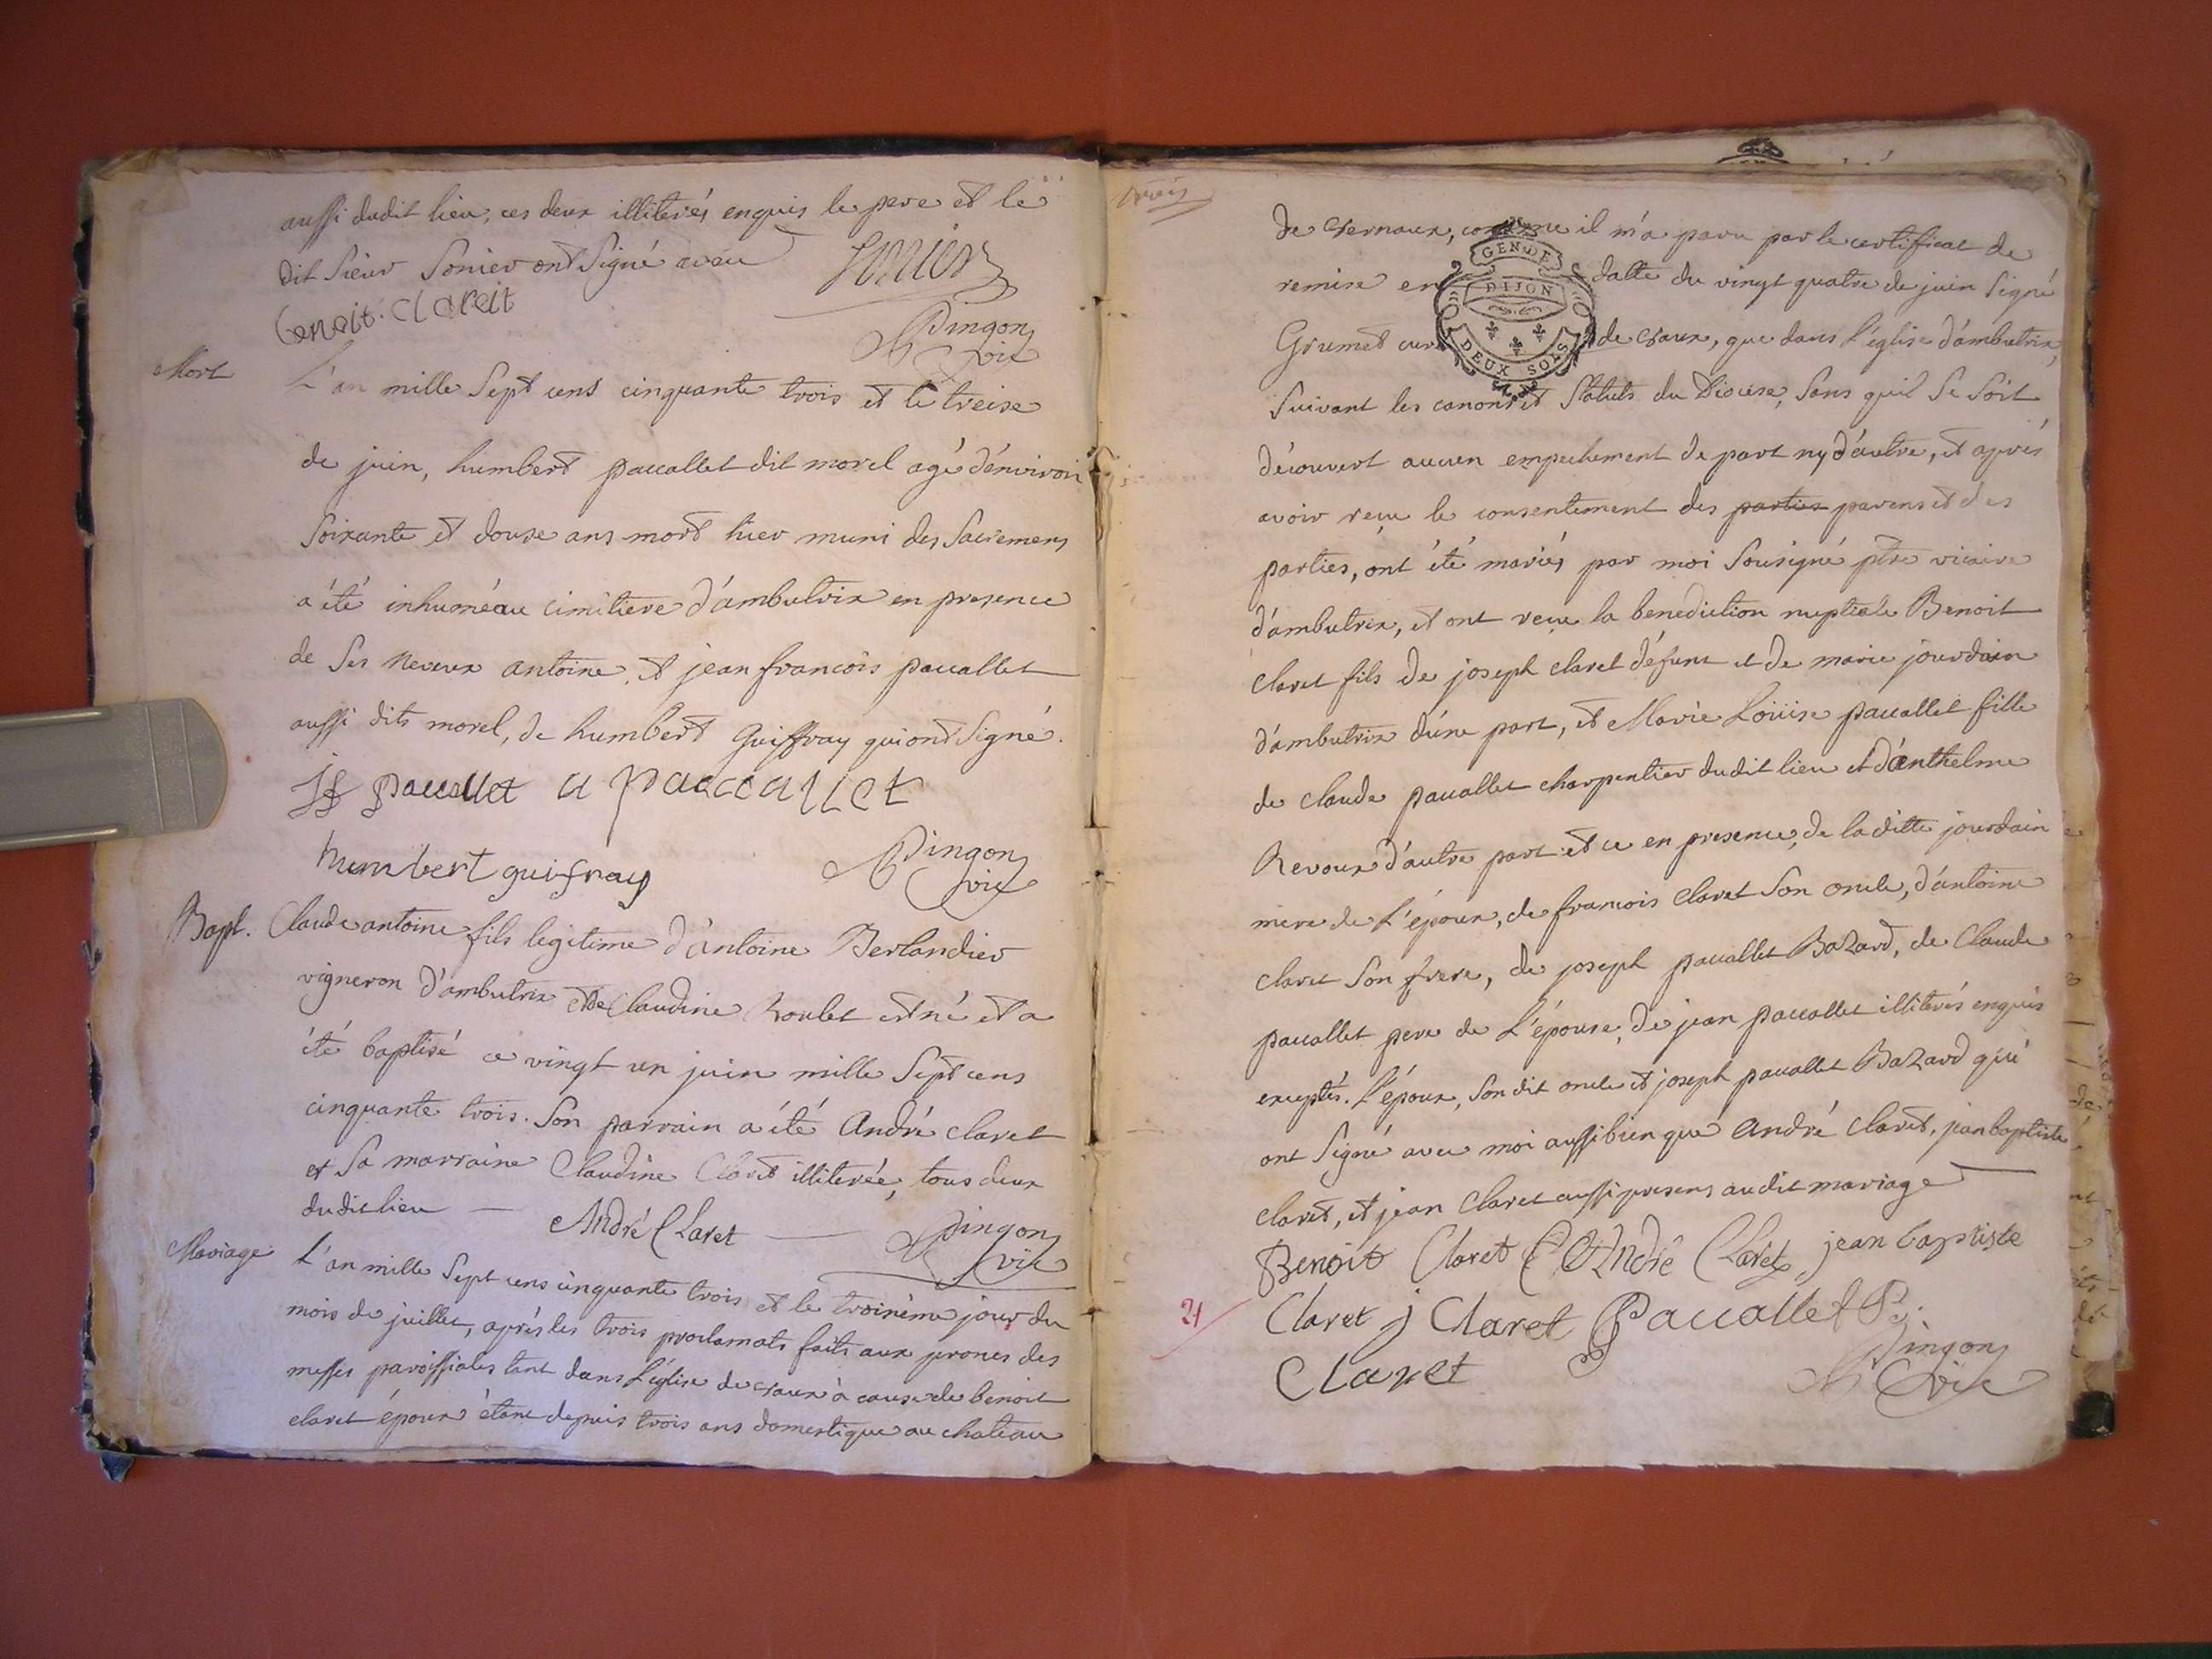 aussi dudit lieu, ces deux illiterés enquis le pere et le
dit sieur Sonier ont signé avec
Sonier
benoit claret
Dingon
vic
Mort
L'an mille sept cens cinquante trois et le treise
de juin, humbert paccallet dit morel agé d'environ
soixante et douse ans mort hier muni des sacremens
a été inhumé au cimitiere d'ambutrix en presence
de ses neveux antoine et jean francois paccallet
aussi dits morel, de humbert Guiffray qui ont signé.
jf paccallet a paccallet
humbert guifray
Dingon
vic
Bapt.
Claude antoine fils legitime d'antoine Berlandier
vigneron d'ambutrix et de Claudine Roulet est né et a
été baptisé ce vingt un juin mille sept cens
cinquante trois. Son parrain a été André claret
et sa marraine Claudine Claret illiterée, tous deux
dudit lieu — André Claret — Dingon
vic
Mariage
L'an mille sept cens cinquante trois et le troisieme jour du
mois de juillet, après les trois proclamats faits aux prones des
messes paroissiales tant dans l'église de vaux à cause de benoit
claret époux étant depuis trois ans domestique au chateau
de vernaux, comme il m'a paru par le certificat de
remise en datte du vingt quatre de juin signé
Grumet cur de vaux, que dans l'église d'ambutrix,
GEN DE
DIJON
DEUX SOLS
suivant les canons et statuts du Diocese, sans quil se soit
découvert aucun empechement de part ny d'autre, et après
avoir reçu le consentement des parties parens et des
parties, ont été mariés par moi sousigné ptre vicaire
d'ambutrix, et ont reçu la benediction nuptiale Benoit
claret fils de joseph claret défunt et de marie jourdain
d'ambutrix d'une part, et Marie Loüise paccallet fille
de claude paccallet charpentier dudit lieu et d'anthelme
Revoux d'autre part et ce en presence, de la ditte jourdain
mere de l'époux, de francois claret son oncle, d'antoine
claret son frere, de joseph paccallet Bazard, de Claude
paccallet pere de l'épouse, de jean paccallet illiterés enquis
exceptés. l'époux, son dit oncle et joseph paccallet Bazard qui
ont signé avec moi aussi bien que André claret, jean baptiste
claret, et jean claret aussi presens audit mariage
Benoit Claret André Claret, jean baptiste
21
Claret j Claret Paccallet
Claret
Dingon
vic